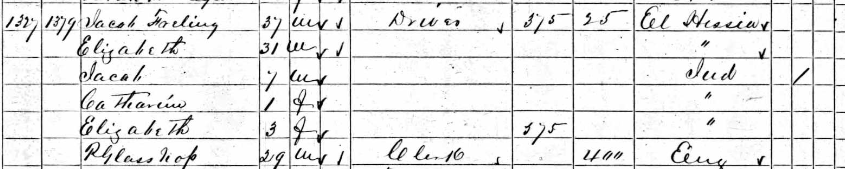 1327 1379 Jacob Freling 37 m Driver 375 25 El Hessia
Elizabeth 31 m "
Jacob 7 m Ind 1
Catharine 1 f "
Elizabeth 3 f 375 "
29 m Clerk 400 Eng